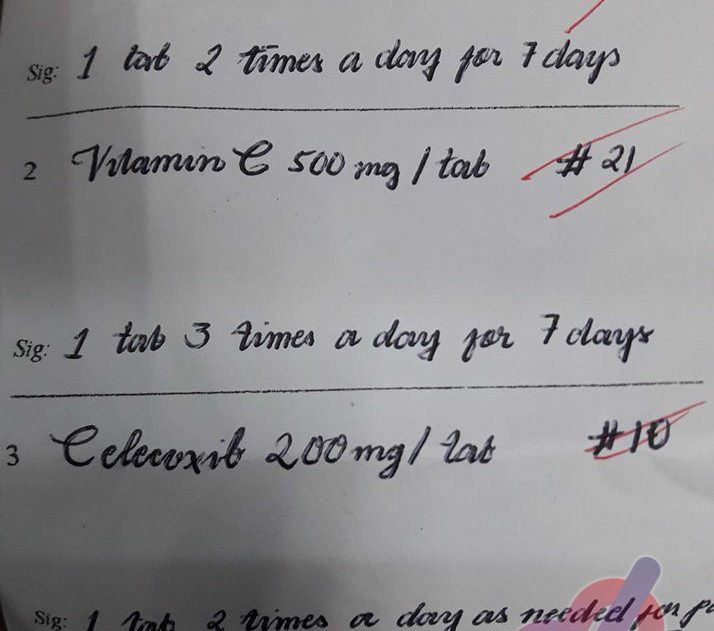 Sig: 1 tab 2 times a day for 7 days
2 Vitamin C 500 mg / tab # 21
Sig: 1 tab 3 times a day for 7 days
3 Celecoxib 200 mg / tab # 10
Sig: 1 tab 2 times a day as needed for